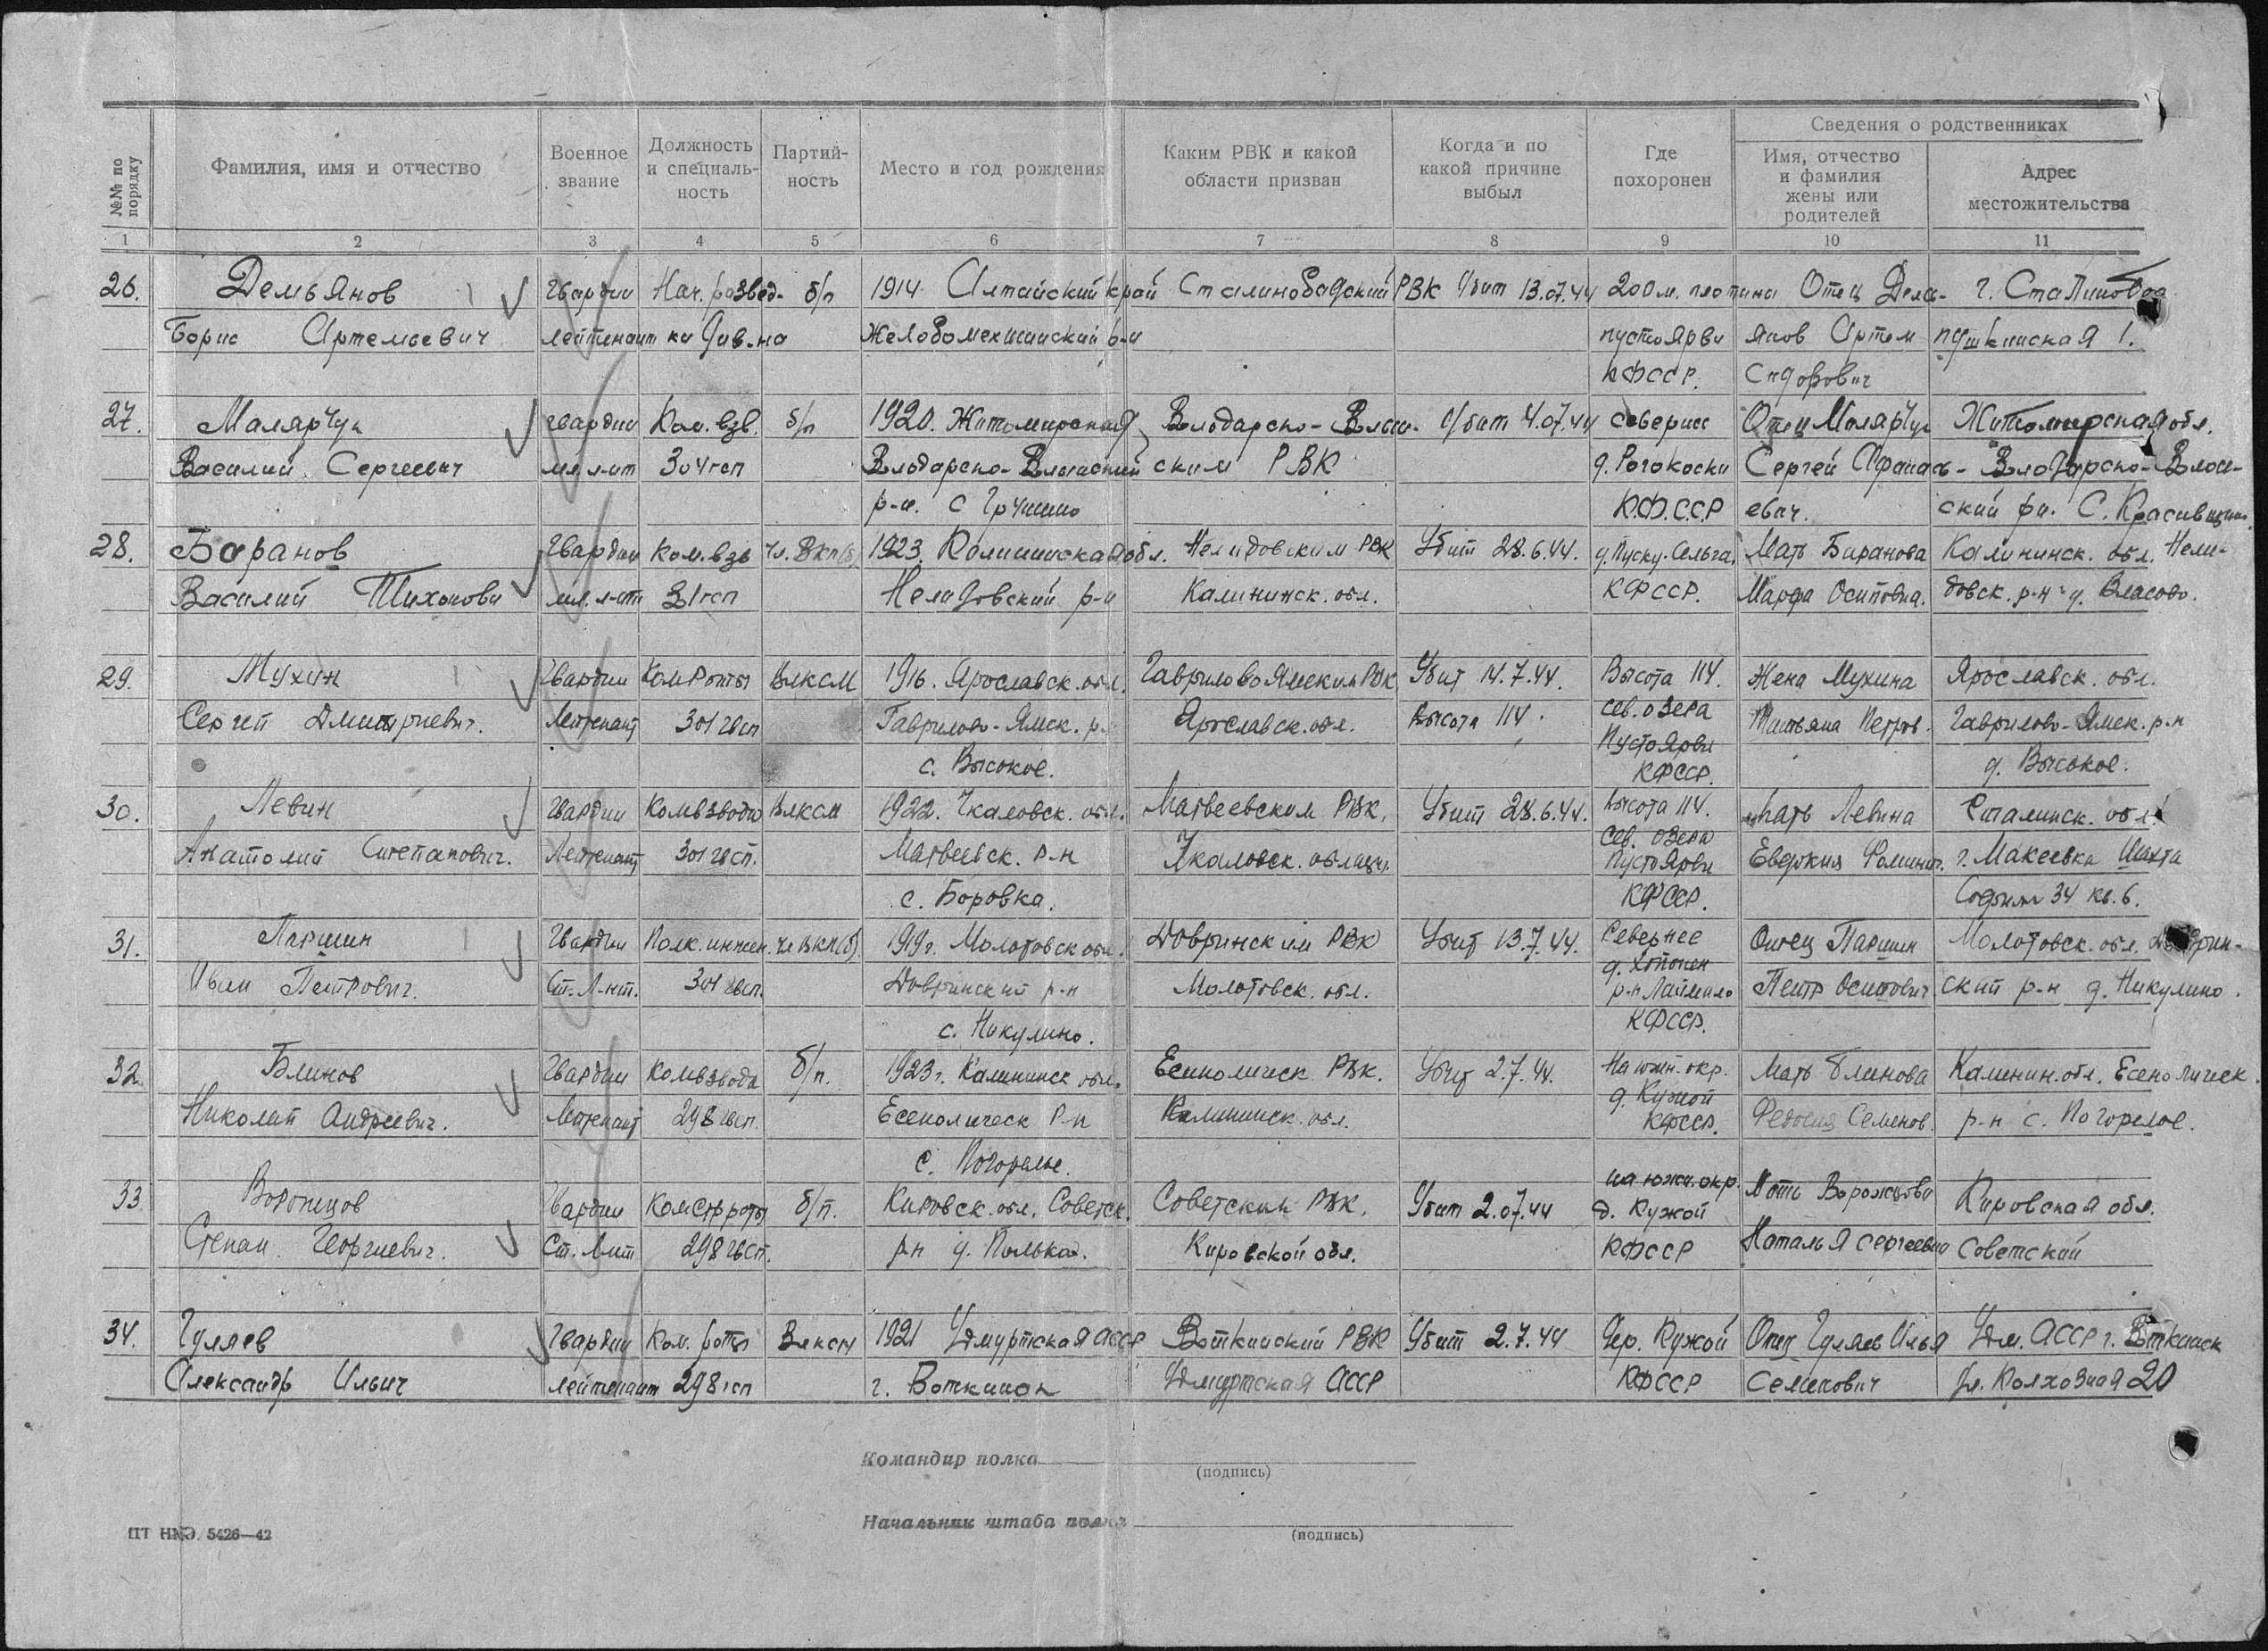 №№ по порядку
Фамилия, имя и отчество
Военное звание
Должность и специаль-ность
Партий-ность
Место и год рождения
Каким РВК и какой области призван
Когда и по какой причине выбыл
Где похоронен
Сведения о родственниках
Имя, отчество и фамилия жены или родителей
Адрес местожительства
1 2 3 4 5 6 7 8 9 10 11
26. Демьянов Гвардии Нач. развед- б/п 1914 Алтайский край Сталинобадский РВК Убит 13.07.44 200 м. плотина Отец Демь- г. Сталинобад
Борис Артемьевич лейтенант ки див-на р-н пустоярви янов Артем пушкинская 1.
КФССР. Сидорович
27. Малярчук гвардии Ком. взв. б/п 1920. Житомирская Володарско-Волын- Убит 4.07.44 севернее Отец Малярчук Житомирская обл.
Василий Сергеевич мл л-нт 304 гсп Влодарско-Волынский ским РВК д. Рогокоски Сергей Афанась- Влодарско-Волын-
р-н. С Грушино К.Ф.С.С.Р евич. ский рн. С.
28. Баранов Гвардии Ком. взв чл. ВКП(б) 1923. Калининская обл. Нелидовским РВК Убит 28.6.44. д. Пуску-Сельга. Мать Баранова Калининск. обл. Нели-
Василий Тихонови мл. л-нт 31 гсп Нелидовский р-н Калининск. обл. КФССР. Марфа Осиповна. довск. р-н д. Власово.
29. Мухин Гвардии Ком Роты ВЛКСМ 1916. Ярославск. обл. Гаврилово Ямским РВК Убит 14.7.44. Высота 114. Жена Мухина Ярославск. обл.
Сергей Дмитриевич. Лейтенант 301 гвсп Гаврилово-Ямск. р. Ярославск. обл. Высота 114. Сев. озера Татьяна Петров. Гаврилово-Ямск. р-н
с. Высокое. Пустоярви д. Высокое.
КФССР.
30. Левин Гвардии Комвзвода ВЛКСМ 1922. Чкаловск. обл. Матвеевским РВК. Убит 28.6.44. Высота 114. Мать Левина Сталинск. обл.
Анатолий Степанович. Лейтенант 301 гвсп. Матвеевск. р-н Чкаловск. Сев. озера Евдокия г. Макеевка Шахта
Пустоярви
с. Боровка. КФССР. София 34 кв. 6.
31. Паршин Гвардии Полк. инжен. чл ВКП(б) 1919 г. Молотовск обл. Добринским РВК Убит 13.7.44. Севернее Отец Паршин Молотовск. обл.
Иван Петрович. Ст. Л-нт. 301 гвсп. Добринский р-н Молотовск. обл. д. Хопонен Петр Осипович ский р-н д. Никулино.
с. Никулино. КФССР.
32. Блинов Гвардии Комвзвода б/п. 1923 г. Калининск обл. РВК. Убит 2.7.44. На южн. окр. Мать Блинова Калинин. обл.
Николай Андреевич. Лейтенант 298 гвсп. р-н Калининск. обл. д. Кужой Федосия Семенов. р-н с. Погорелое.
с. КФССР.
33. Гвардии б/п. Кировск. обл. Советск. Советским РВК. Убит 2.07.44 на южн. окр. Мать Кировская обл.
Степан Георгиевич. Ст. Л-нт 298 гвсп. рн д. Кировской обл. д. Кужой Наталья Сергеевна Советский
КФССР
34. Гуляев Гвардии Ком. роты ВЛКСМ 1921 Удмуртская АССР Воткинский РВК Убит 2.7.44 Кужой Отец Гуляев Илья Удм. АССР г. Воткинск
Александр Ильич лейтенант 298 гсп г. Удмуртская АССР КФССР Семенович ул. Колхозная 20
Командир полка
(подпись)
Начальник штаба полка
(подпись)
5426—42